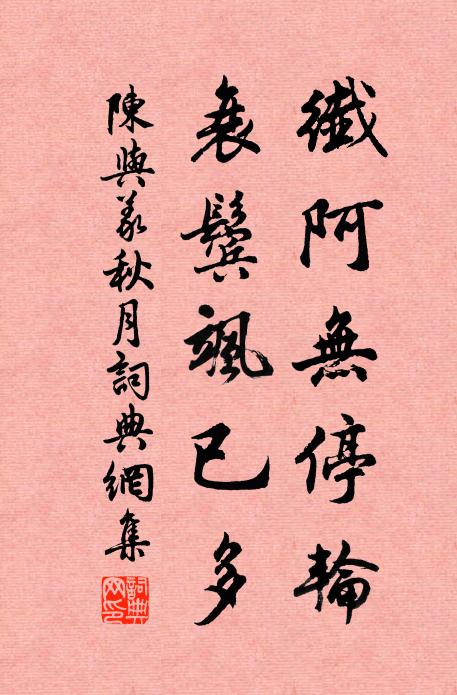 纖阿無停輪
衰鬢颯已多
陳與義秋月詞典網集
詞典網印